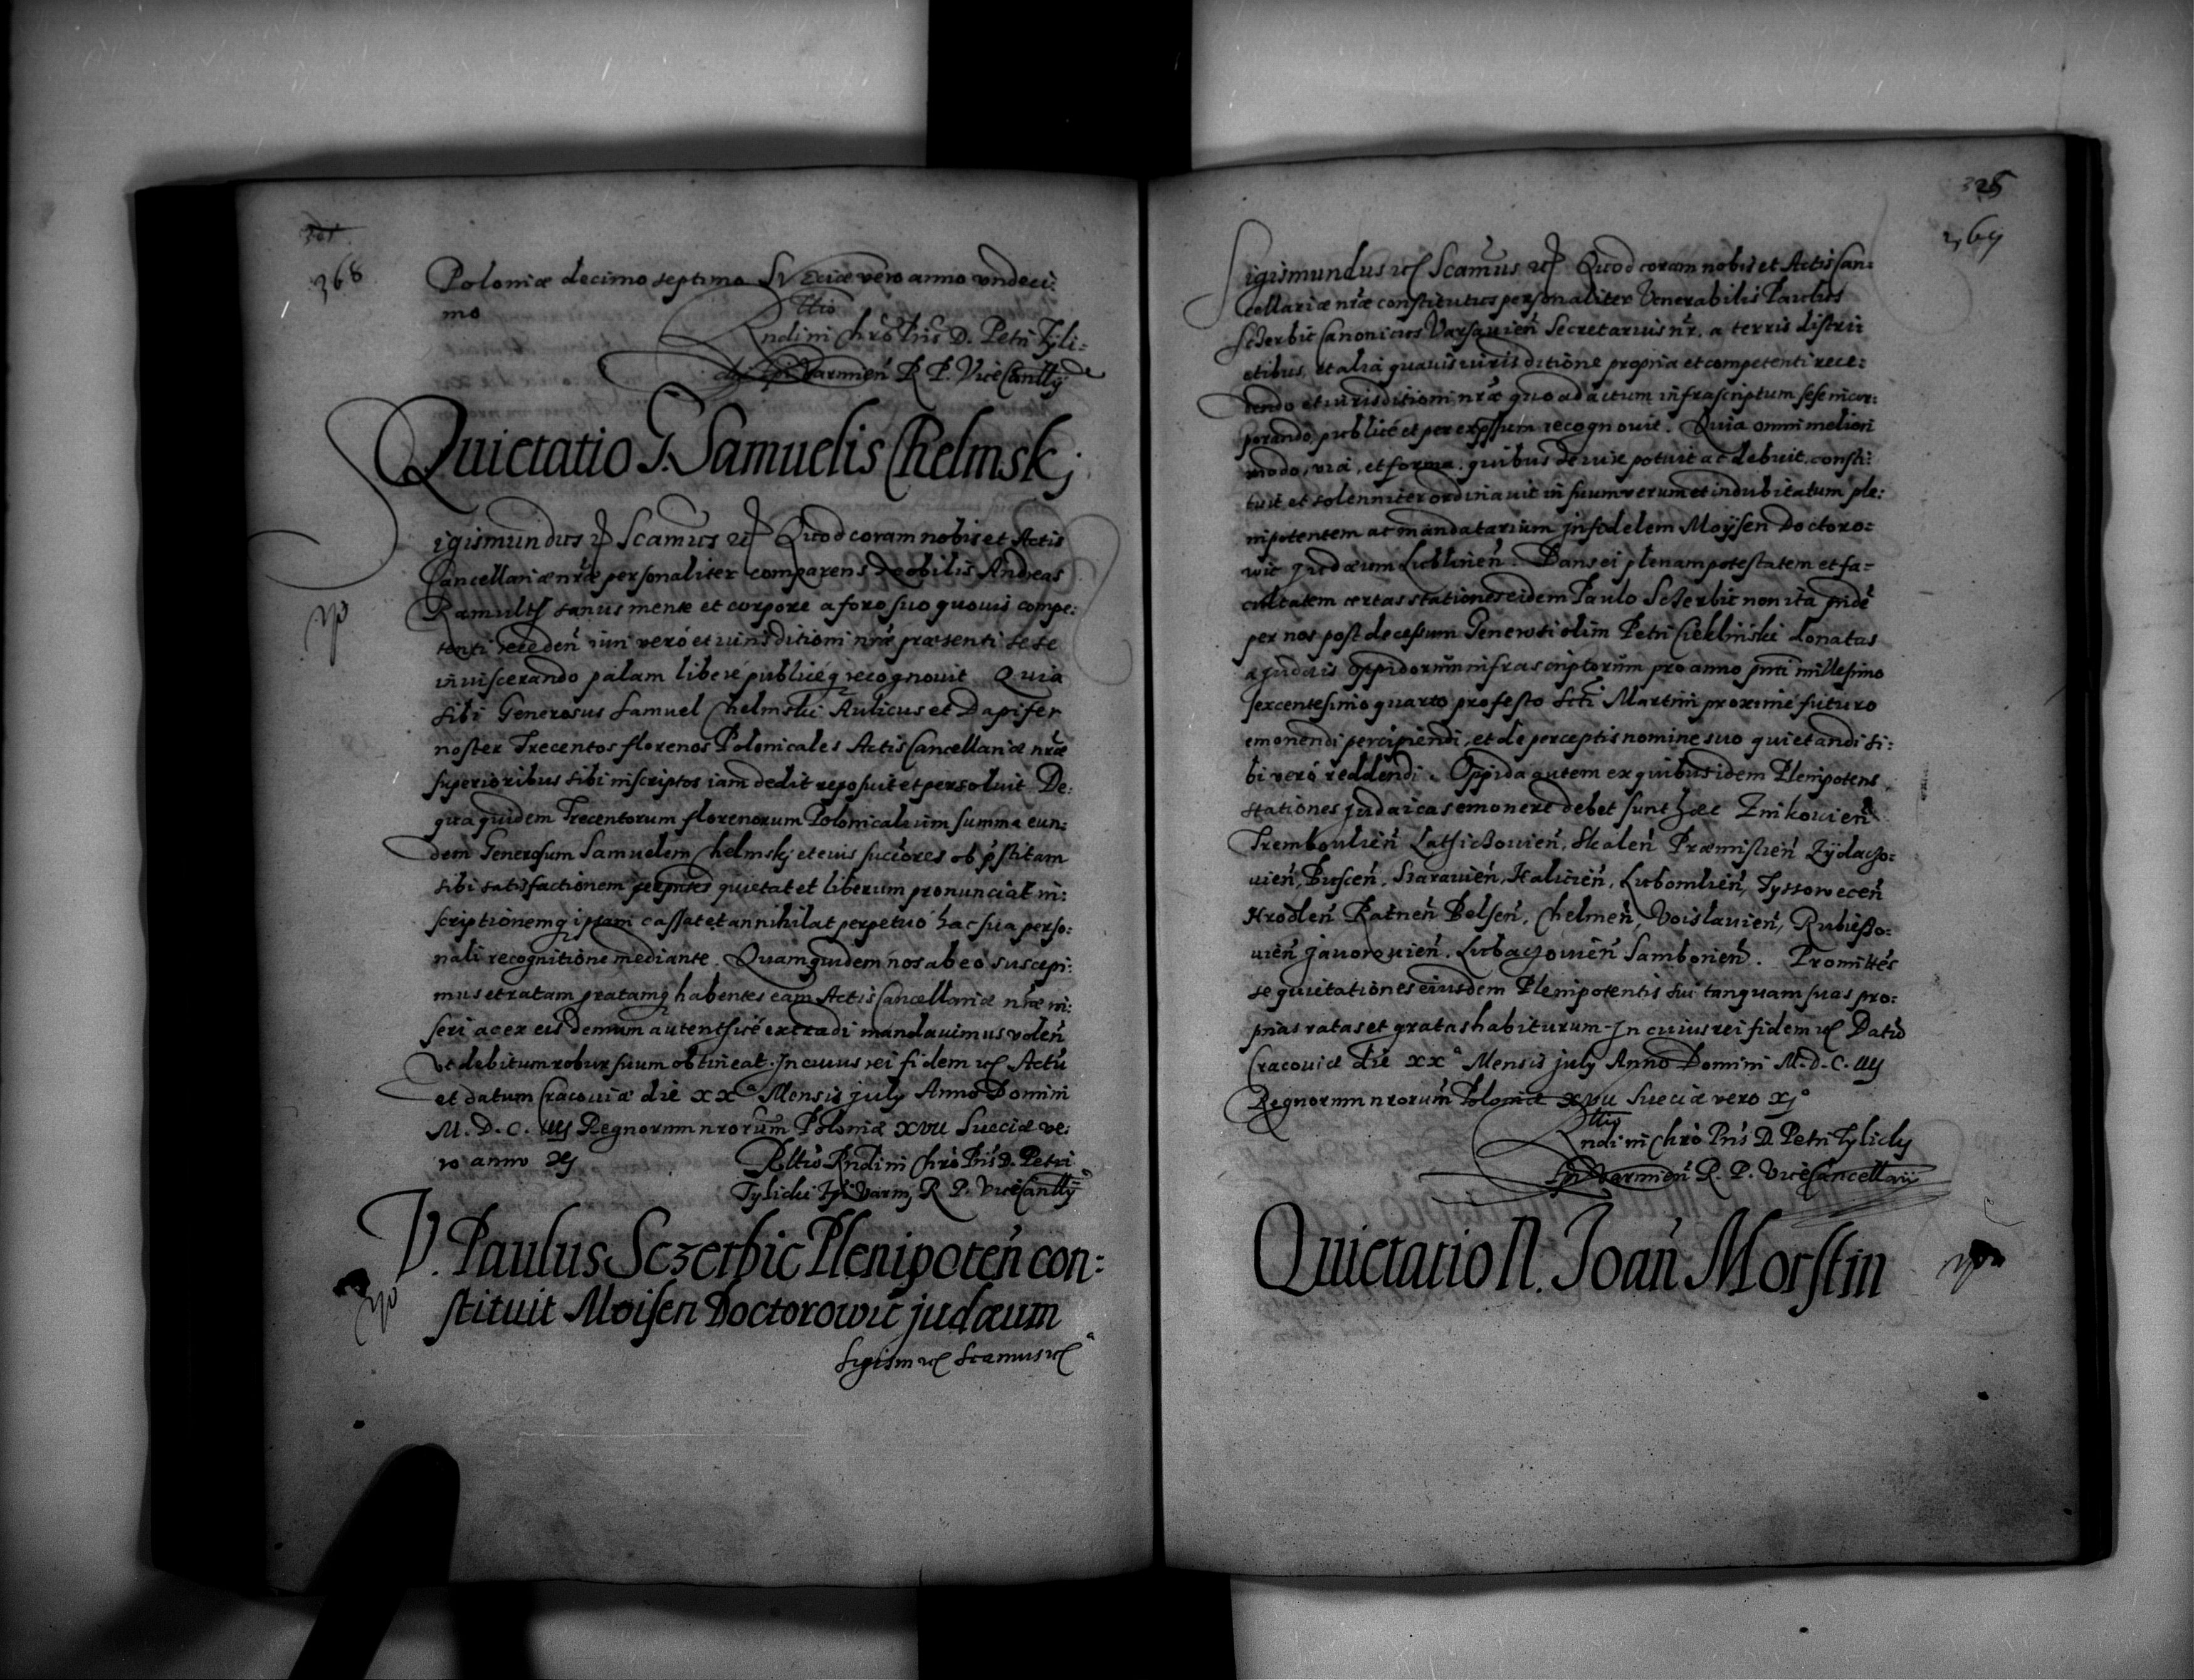 368
Poloniæ decimo septimo Sveciæ vero anno vndeci:
mo
Rndi in Chrō Pris D. Petri Tyli:
Varmień R. P. Vice Cancllÿ
Quietatio G. Samuelis Chelmskj
Sigismundus Scamus Quod coram nobis et Actis
Cancellariæ nr̄æ personaliter comparens Nobilis Andreas
Ramultſ sanus mente et corpore a foro suo quouis compe:
tenti receden̄ iuri veró et iurisditioni nr̄æ præsenti sese
inuiscerando palam liberé publicéq recognouit Quia
sibi Generosus Samuel Chelmski Aulicus et Dapifer
noster Trecentos florenos Polonicales Actis Cancellariæ nr̄æ
superioribus sibi inscriptos iam dedit reposuit et persoluit De:
qua quidem Trecentorum florenorum Polonicalium summa eun:
dem Generosum Samuelem Chelmskj et eius succores ob pstitam
sibi satisfactionem quietat et liberum pronunciat in:
scriptionemq ipsam cassat et annihilat perpetuó hac sua perso:
nali recognitione mediante. Quam quidem nos ab eo suscepi:
mus et ratam gratamq habentes eam Actis Cancellariæ nr̄æ in:
seri ac ex eisdemum autenthicé extradi mandauimus volen̄
vt debitum robur suum obtineat. In cuius rei fidem Actū
et datum Cracouiæ die xxª Mensis july Anno Domini
M. D. C. iiij Regnorum nrorum Poloniæ xvii Sueciæ ve:
ro anno xj Rltio Rndi in Chrō Pris D. Petri
Tylicki Epi Varm, R. P. Vice Cancllÿ
V. Paulus Sczerbic Plenipoten̄ con:
stituit Moisen Doctorowic judæum
Sigism Scamus
325
369
Sigismundus Scamus Quod coram nobis et Actis Can:
cellariæ nr̄æ constitutus personaliter Venerabilis Paulus
Sczerbic Canonicus Varsauien̄ Secretarius nr̄, a terris distri
ctibus, et alia quauis iurisditione propria et competenti rece:
dendo et iurisditioni nr̄æ quo ad actum infrascriptum sese incor:
porando, publicé et per expssum recognouit. Quia omni meliori
modo, via, et forma, quibus de iure potuit ac debuit, consti:
tuit et solenniter ordinauit in suum verum et indubitatum ple:
nipotentem ac mandatarium jnfidelem Moÿsen Doctoro:
wic judæum Lublinen̄. Dans ei plenam potestatem et fa:
cultatem certas stationes eidem Paulo Sczerbic non ita pridē
per nos post decessum Generosi olim Petri Ciekliński donatas
a judæis oppidorum infrascriptorum pro anno pnti millesimo
sexcentesimo quarto pro festo Scti Martini proximé futuro
emonendi percipiendi, et de perceptis nomine suo quietandi si:
bi veró reddendi. Oppida autem ex quibus idem Plenipotens
stationes judaicas emonere debet sunt hæc Zinkouien̄
Trembowlien̄ Skalen̄ Præmislien̄ Zÿdaczo:
uien̄, Buscen̄, Szarauien̄, Halicien̄, Lubomlien̄, Tyssowecen̄
Hrodlen̄ Ratnen̄ Belsen̄, Chelmen̄, Voislauien̄, Rubießo:
uien̄ Jauorouien̄, Lubaczouien̄ Samborien̄. Promittēs
se quietationes eiusdem Plenipotentis sui tanquam suas pro:
prias ratas et gratas habiturum. In cuius rei fidem Datū
Cracouiæ die xxª Mensis july Anno Domini M. D. C. iiij
Regnorum nrorum Poloniæ xvii Sueciæ vero xjº
Rndi in Chrō Pris D. Petri Tylicky
Epi Varmien̄ R. P. Vice Cancellarii
Quietatio N. Joan̄ Morstin